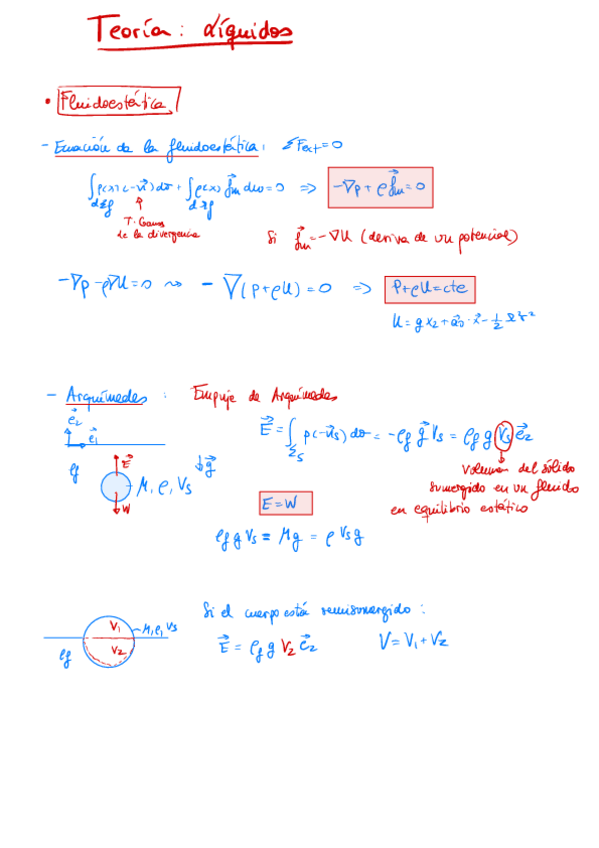 Teoría: Líquidos
• Fluidoestática
- Ecuación de la fluidoestática: ΣFext=0
∫ p(x)(-n⃗)dσ + ∫ ρ(x) f⃗m dω = 0 ⇒ -∇p + ρf⃗m = 0
T. Gauss
de la divergencia
Si f⃗m = -∇U (deriva de un potencial)
-∇p - ρ∇U = 0 ⇝ - ∇(p+ρU) = 0 ⇒ P+ρU=cte
U = gx₂ + a⃗₀·x⃗ - 1/2 Ω²r²
- Arquímedes : Empuje de Arquímedes
e⃗₂
e⃗₁
E⃗ = ∫ p(-n⃗s) dσ = -ρf g⃗ Vs = ρf g Vs e⃗₂
Σs
ρf
E⃗
g⃗
M, ρ, Vs
W
Volumen del sólido
sumergido en un fluido
en equilibrio estático
E = W
ρf g Vs = Mg = ρ Vs g
Si el cuerpo está semisumergido :
V₁
M, ρ, Vs
V₂
ρf
E⃗ = ρf g V₂ e⃗₂
V = V₁ + V₂